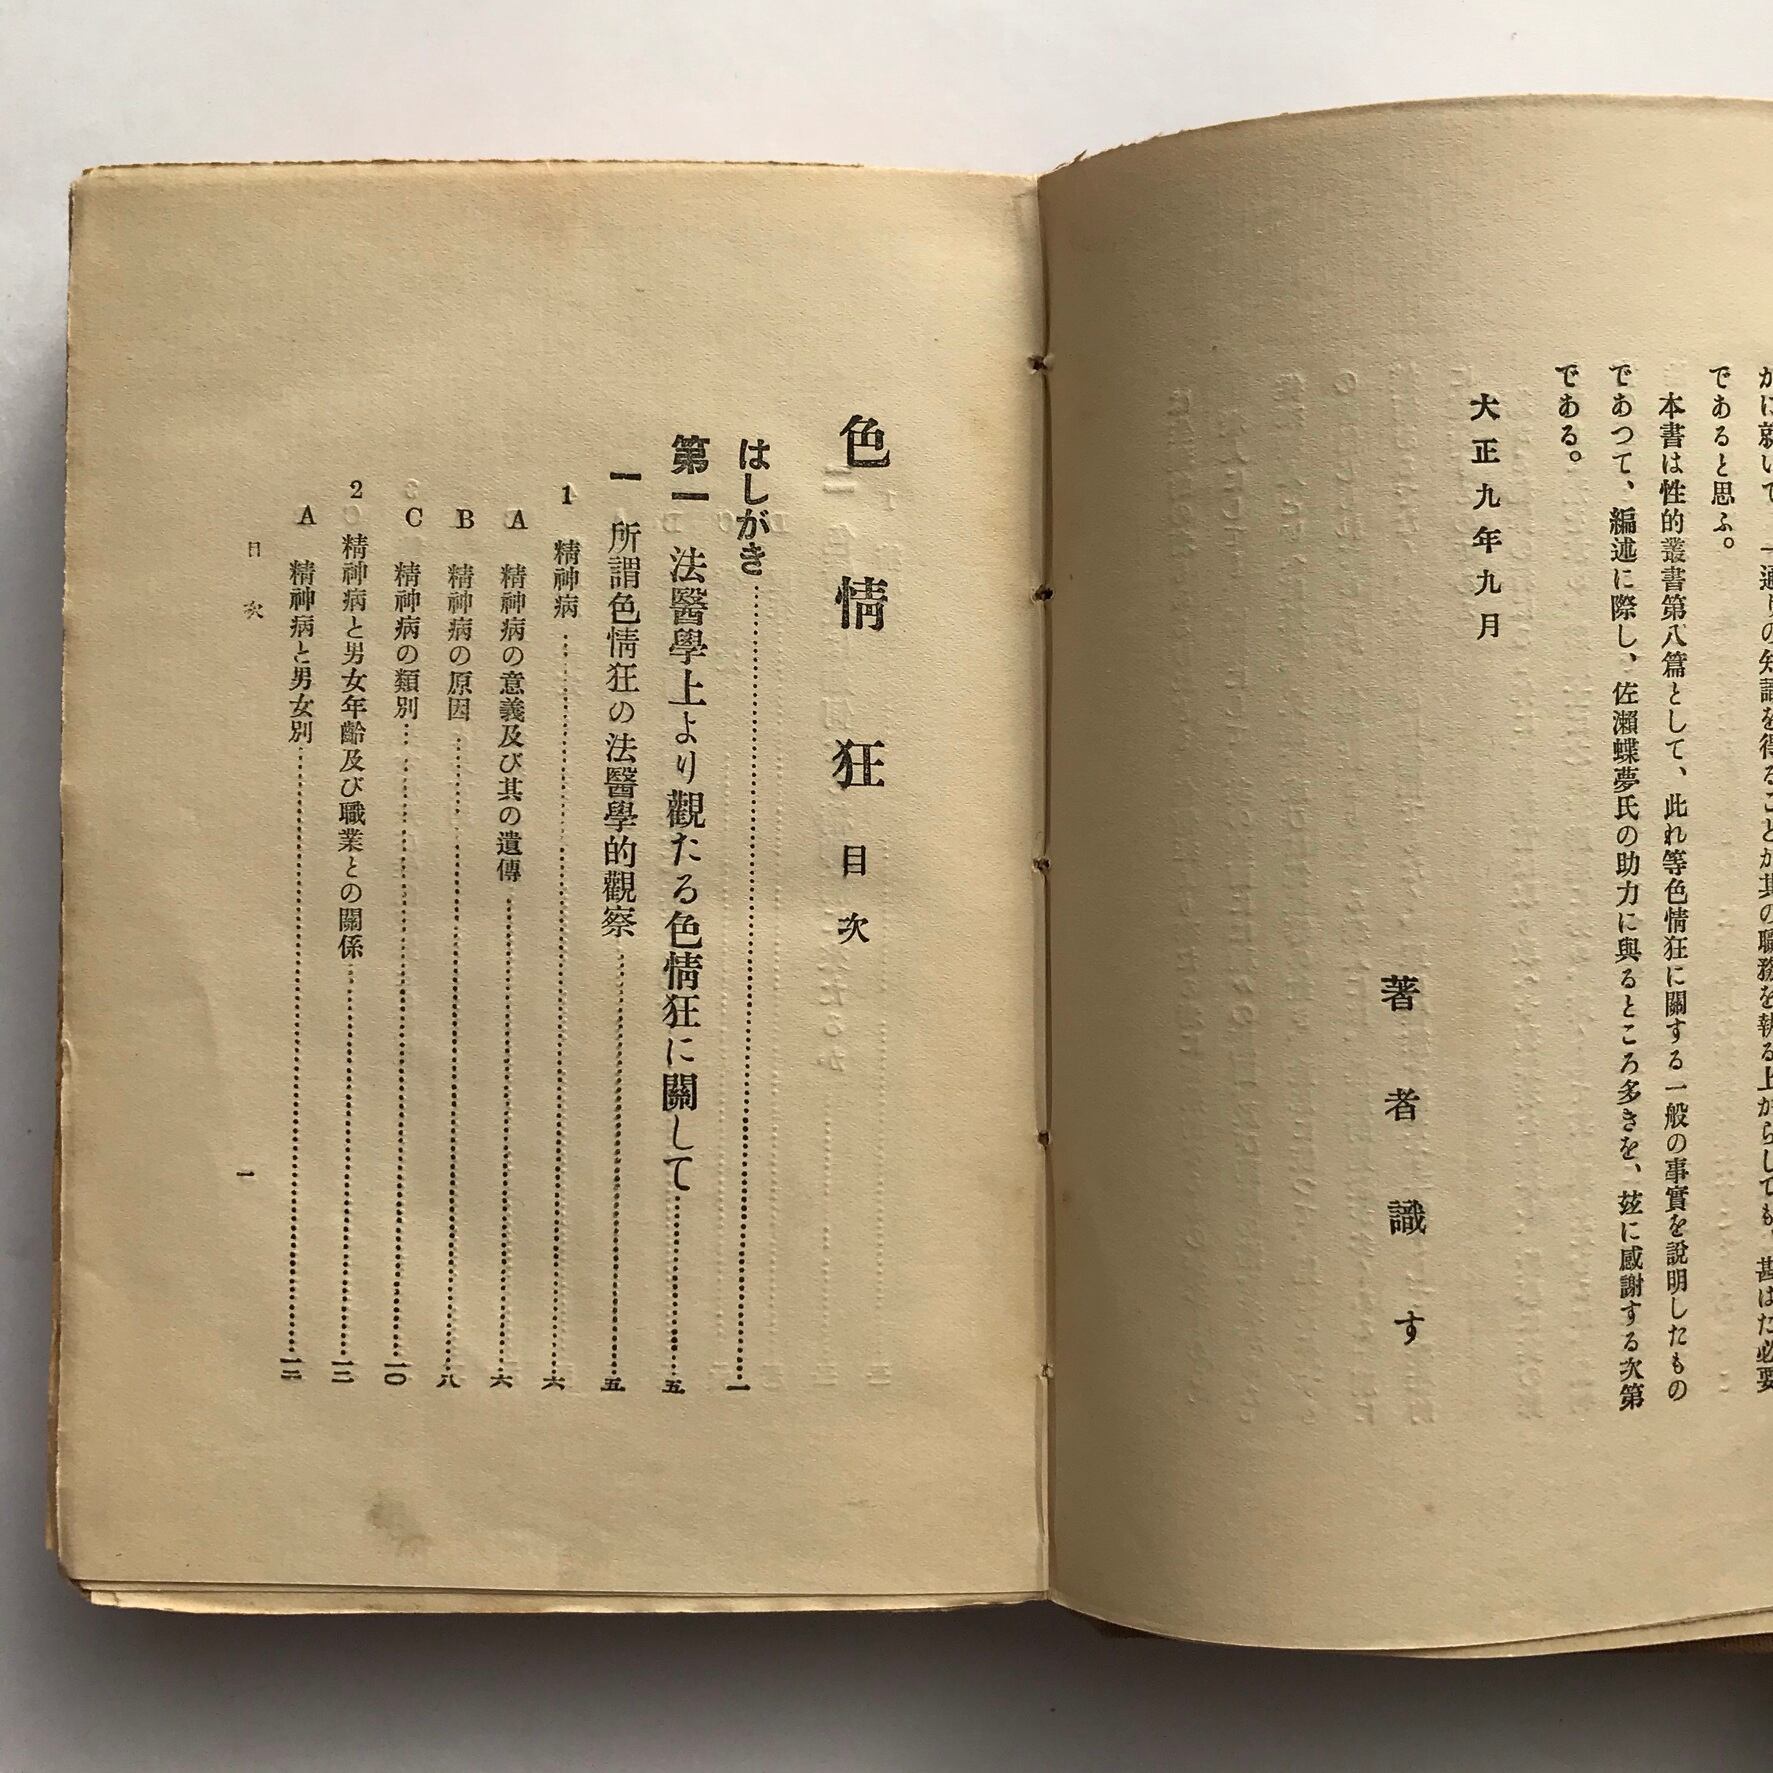 であると思ふ。
本書は性的叢書第八篇として、此れ等色情狂に關する一般の事實を説明したもの
であつて、編述に際し、佐瀬蝶夢氏の助力に與るところ多きを、玆に感謝する次第
である。
大正九年九月
著者識す
色情狂目次
はしがき……一
第一 法醫學上より觀たる色情狂に關して……五
一 所謂色情狂の法醫學的觀察……五
1 精神病……六
A 精神病の意義及び其の遺傳……六
B 精神病の原因……八
C 精神病の類別……一〇
2 精神病と男女年齡及び職業との關係……一二
A 精神病と男女別……一二
目次
一